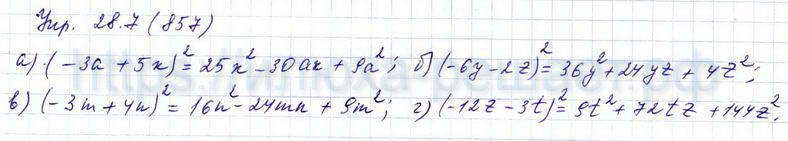 Упр. 28.7 (857)
а) (-3a + 5x)² = 25x² - 30ax + 9a²; б) (-6y - 2z)² = 36y² + 24yz + 4z²;
в) (-3m + 4n)² = 16n² - 24mn + 9m²; г) (-12z - 3t)² = 9t² + 72tz + 144z².